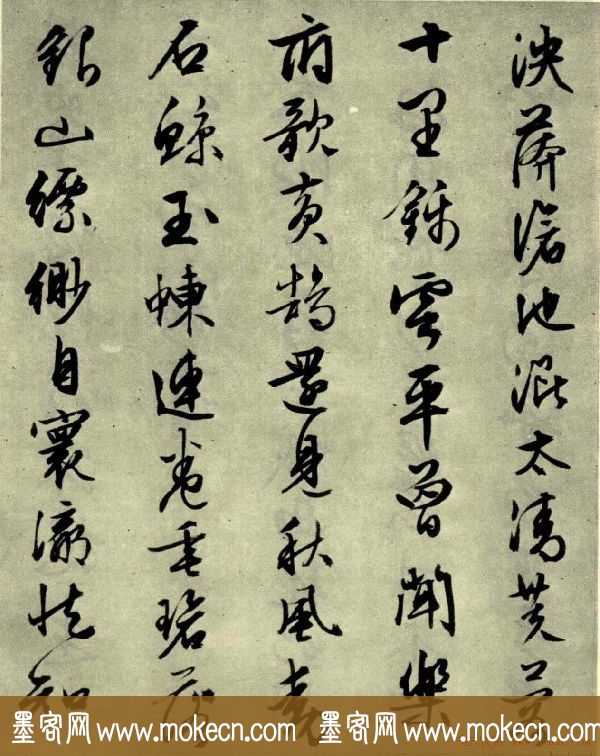 泱漭滄池混太清芙
十里錦雲平曾聞樂
府歌黃鵠還見秋風
石鯨玉蝀連卷垂碧落
銀山縹緲自寰瀛從知
墨客网 www.mokecn.com 墨客网 www.mokecn.com